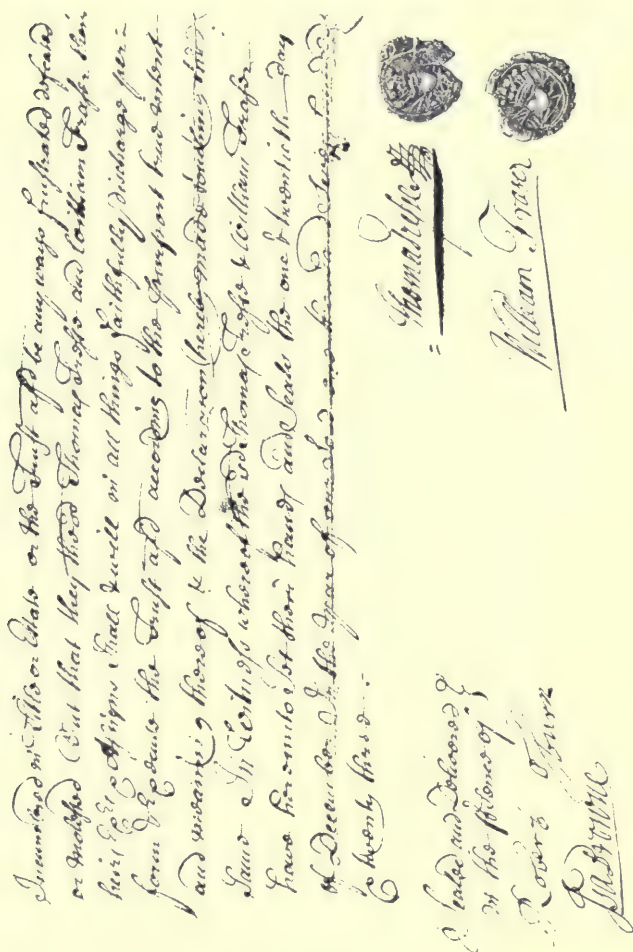 Incumbred in Title or Estate or the Trust afsd be any ways frustrated defeated
or molested But that they the sd Thomas Trofse and William Fraser their
heirs Exrs & Assigns shall & will in all things faithfully discharge per-
form & Execute the Trust afsd according to the purport true intent
and meaning thereof & the Declaracon herein made touching the
same In Witness whereof the sd Thomas & William Fraser
have hereunto Set their hands and Seals the one & twentieth day
of December In the year of our Lord one thousand Seven hundred
& twenty three :
Thomas
William Frazer
Sealed and Delivered
in the presence of
Robert
Browne